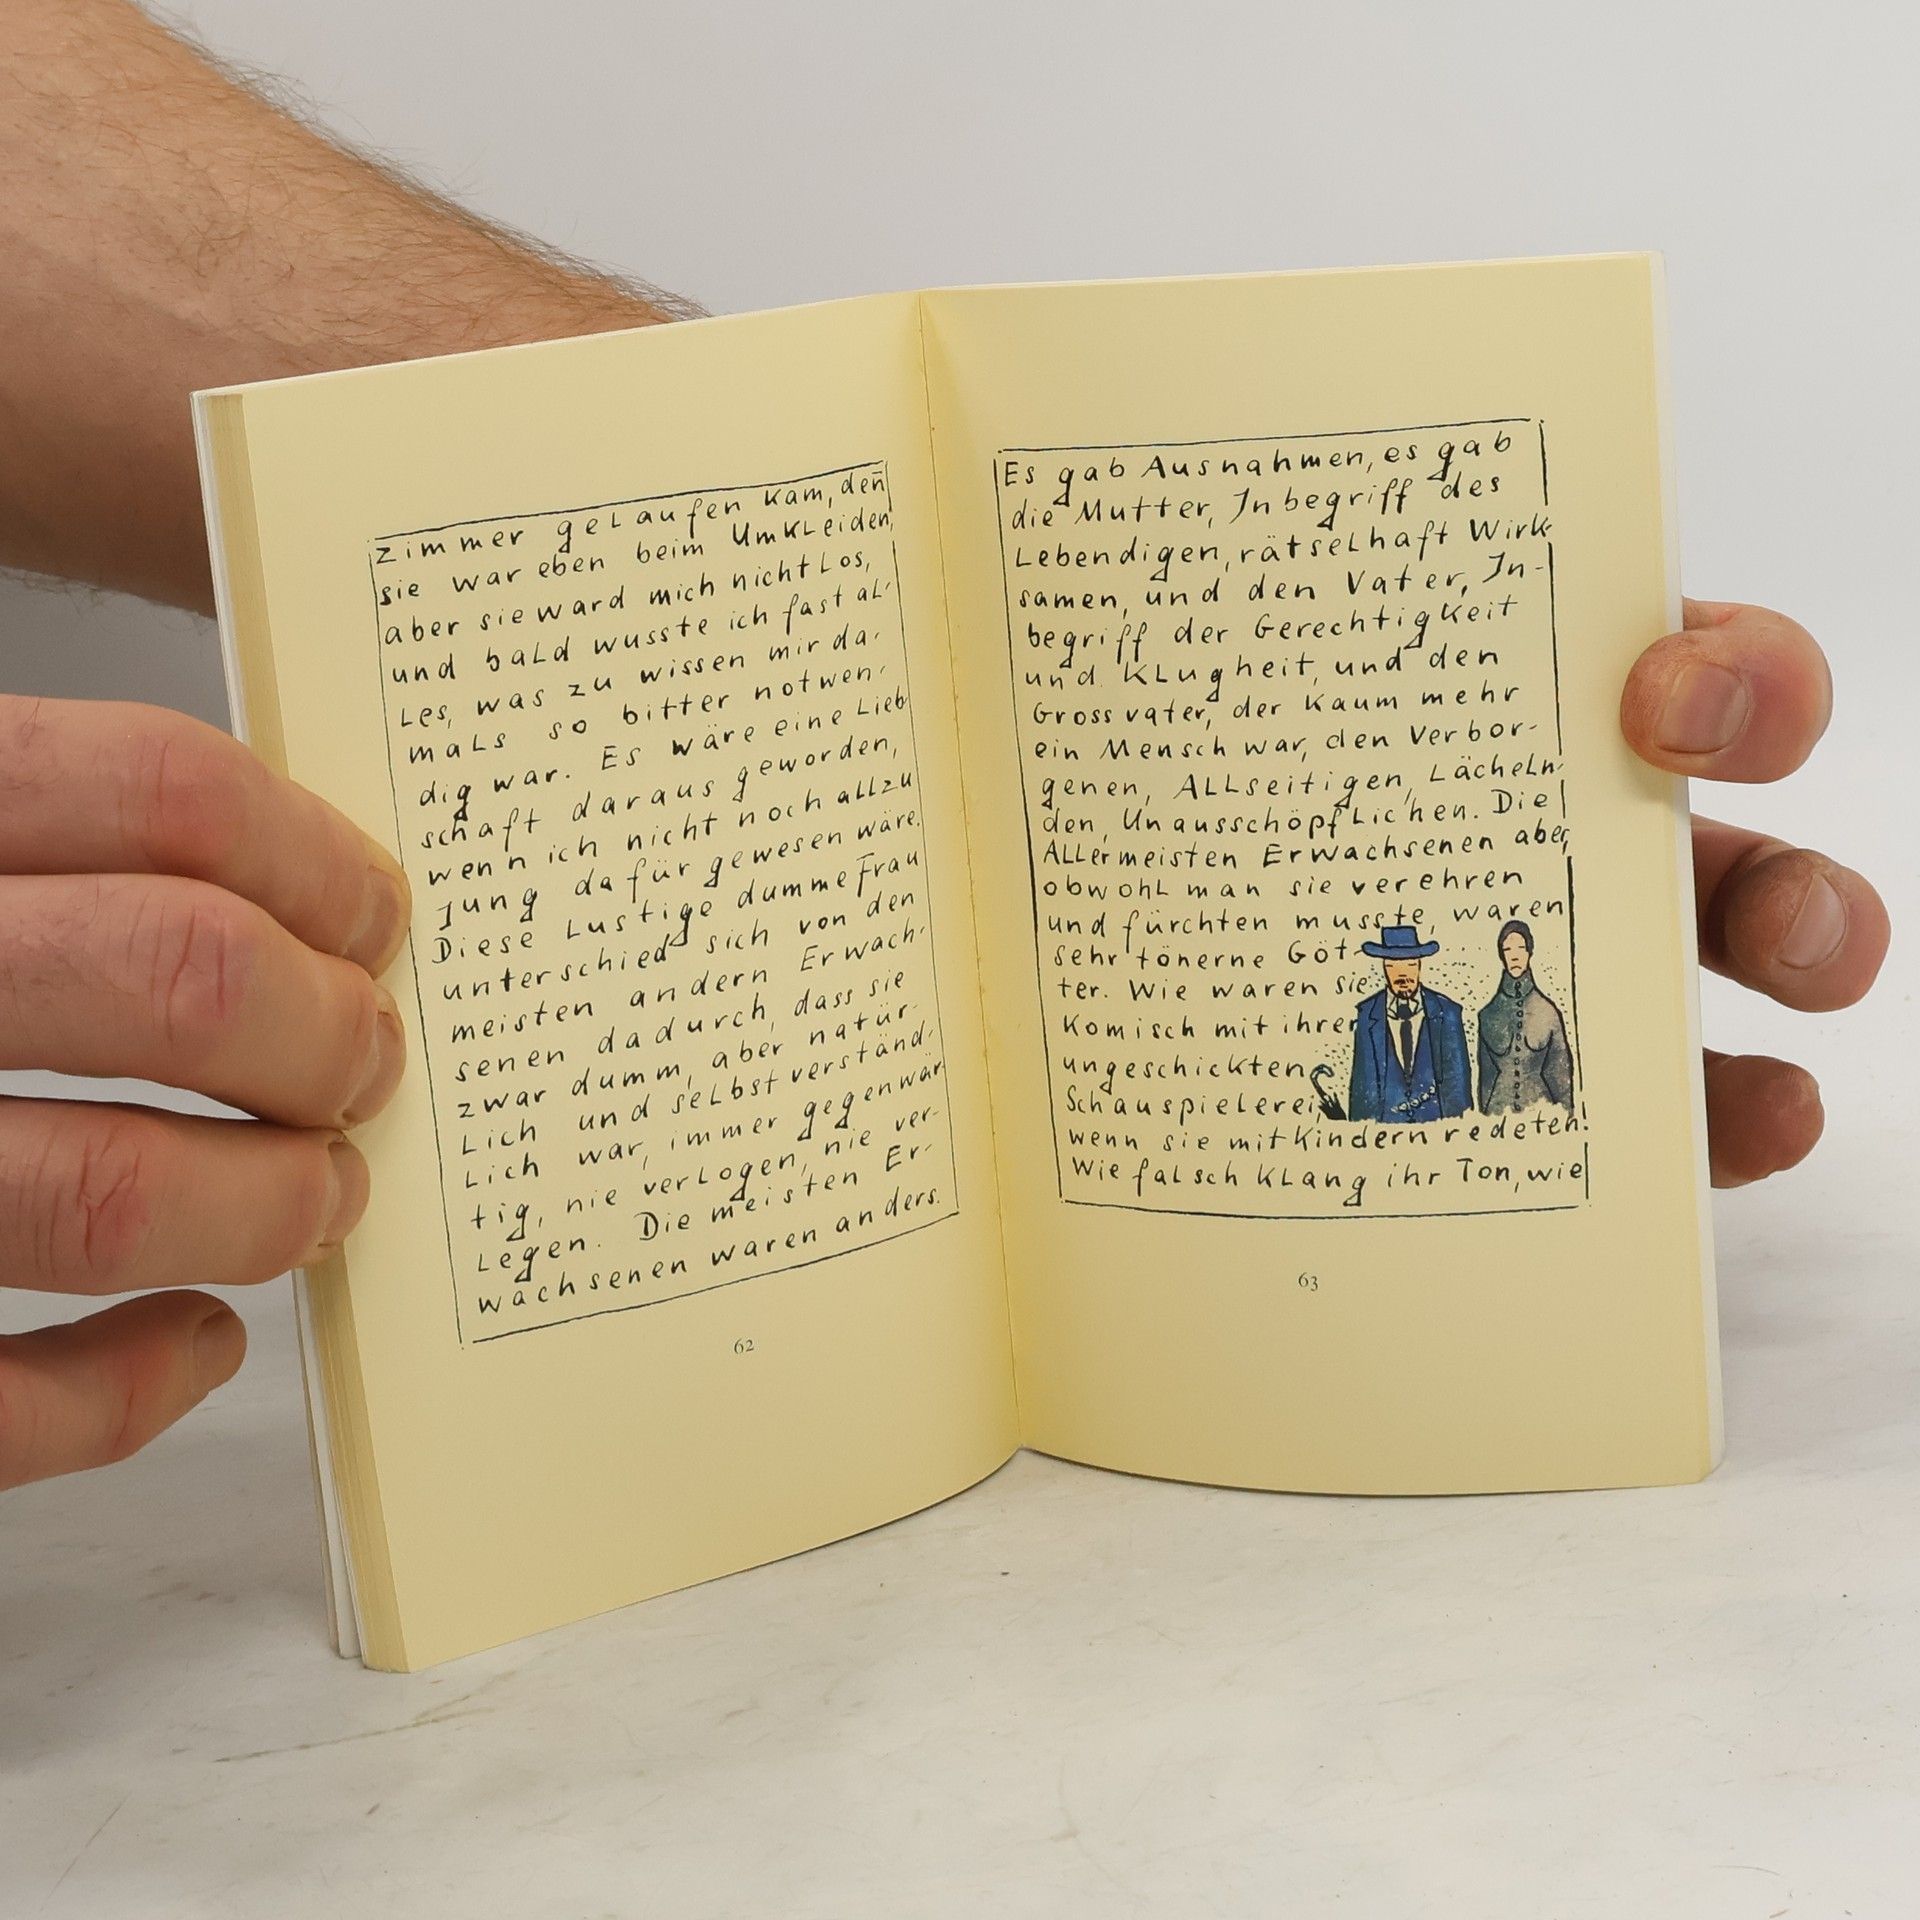 zimmer gelaufen kam, den̄
sie war eben beim Umkleiden,
aber sie ward mich nicht los,
und bald wusste ich fast al-
les, was zu wissen mir da-
mals so bitter notwen-
dig war. Es wäre eine Lieb
schaft daraus geworden,
wenn ich nicht noch allzu
jung dafür gewesen wäre.
Diese lustige dumme Frau
unterschied sich von den
meisten andern Erwach-
senen dadurch, dass sie
zwar dumm, aber natür-
lich und selbstverständ-
lich war, immer gegenwär-
tig, nie verlogen, nie ver-
legen. Die meisten Er-
wachsenen waren anders.
62
Es gab Ausnahmen, es gab
die Mutter, Inbegriff des
Lebendigen, rätselhaft Wirk-
samen, und den Vater, In-
begriff der Gerechtigkeit
und Klugheit, und den
Grossvater, der kaum mehr
ein Mensch war, den Verbor-
genen, Allseitigen, Lächeln-
den, Unausschöpflichen. Die
Allermeisten Erwachsenen aber,
obwohl man sie verehren
und fürchten musste, waren
sehr tönerne Göt-
ter. Wie waren sie
komisch mit ihrer
ungeschickten
Schauspielerei,
wenn sie mit Kindern redeten!
Wie falsch klang ihr Ton, wie
63